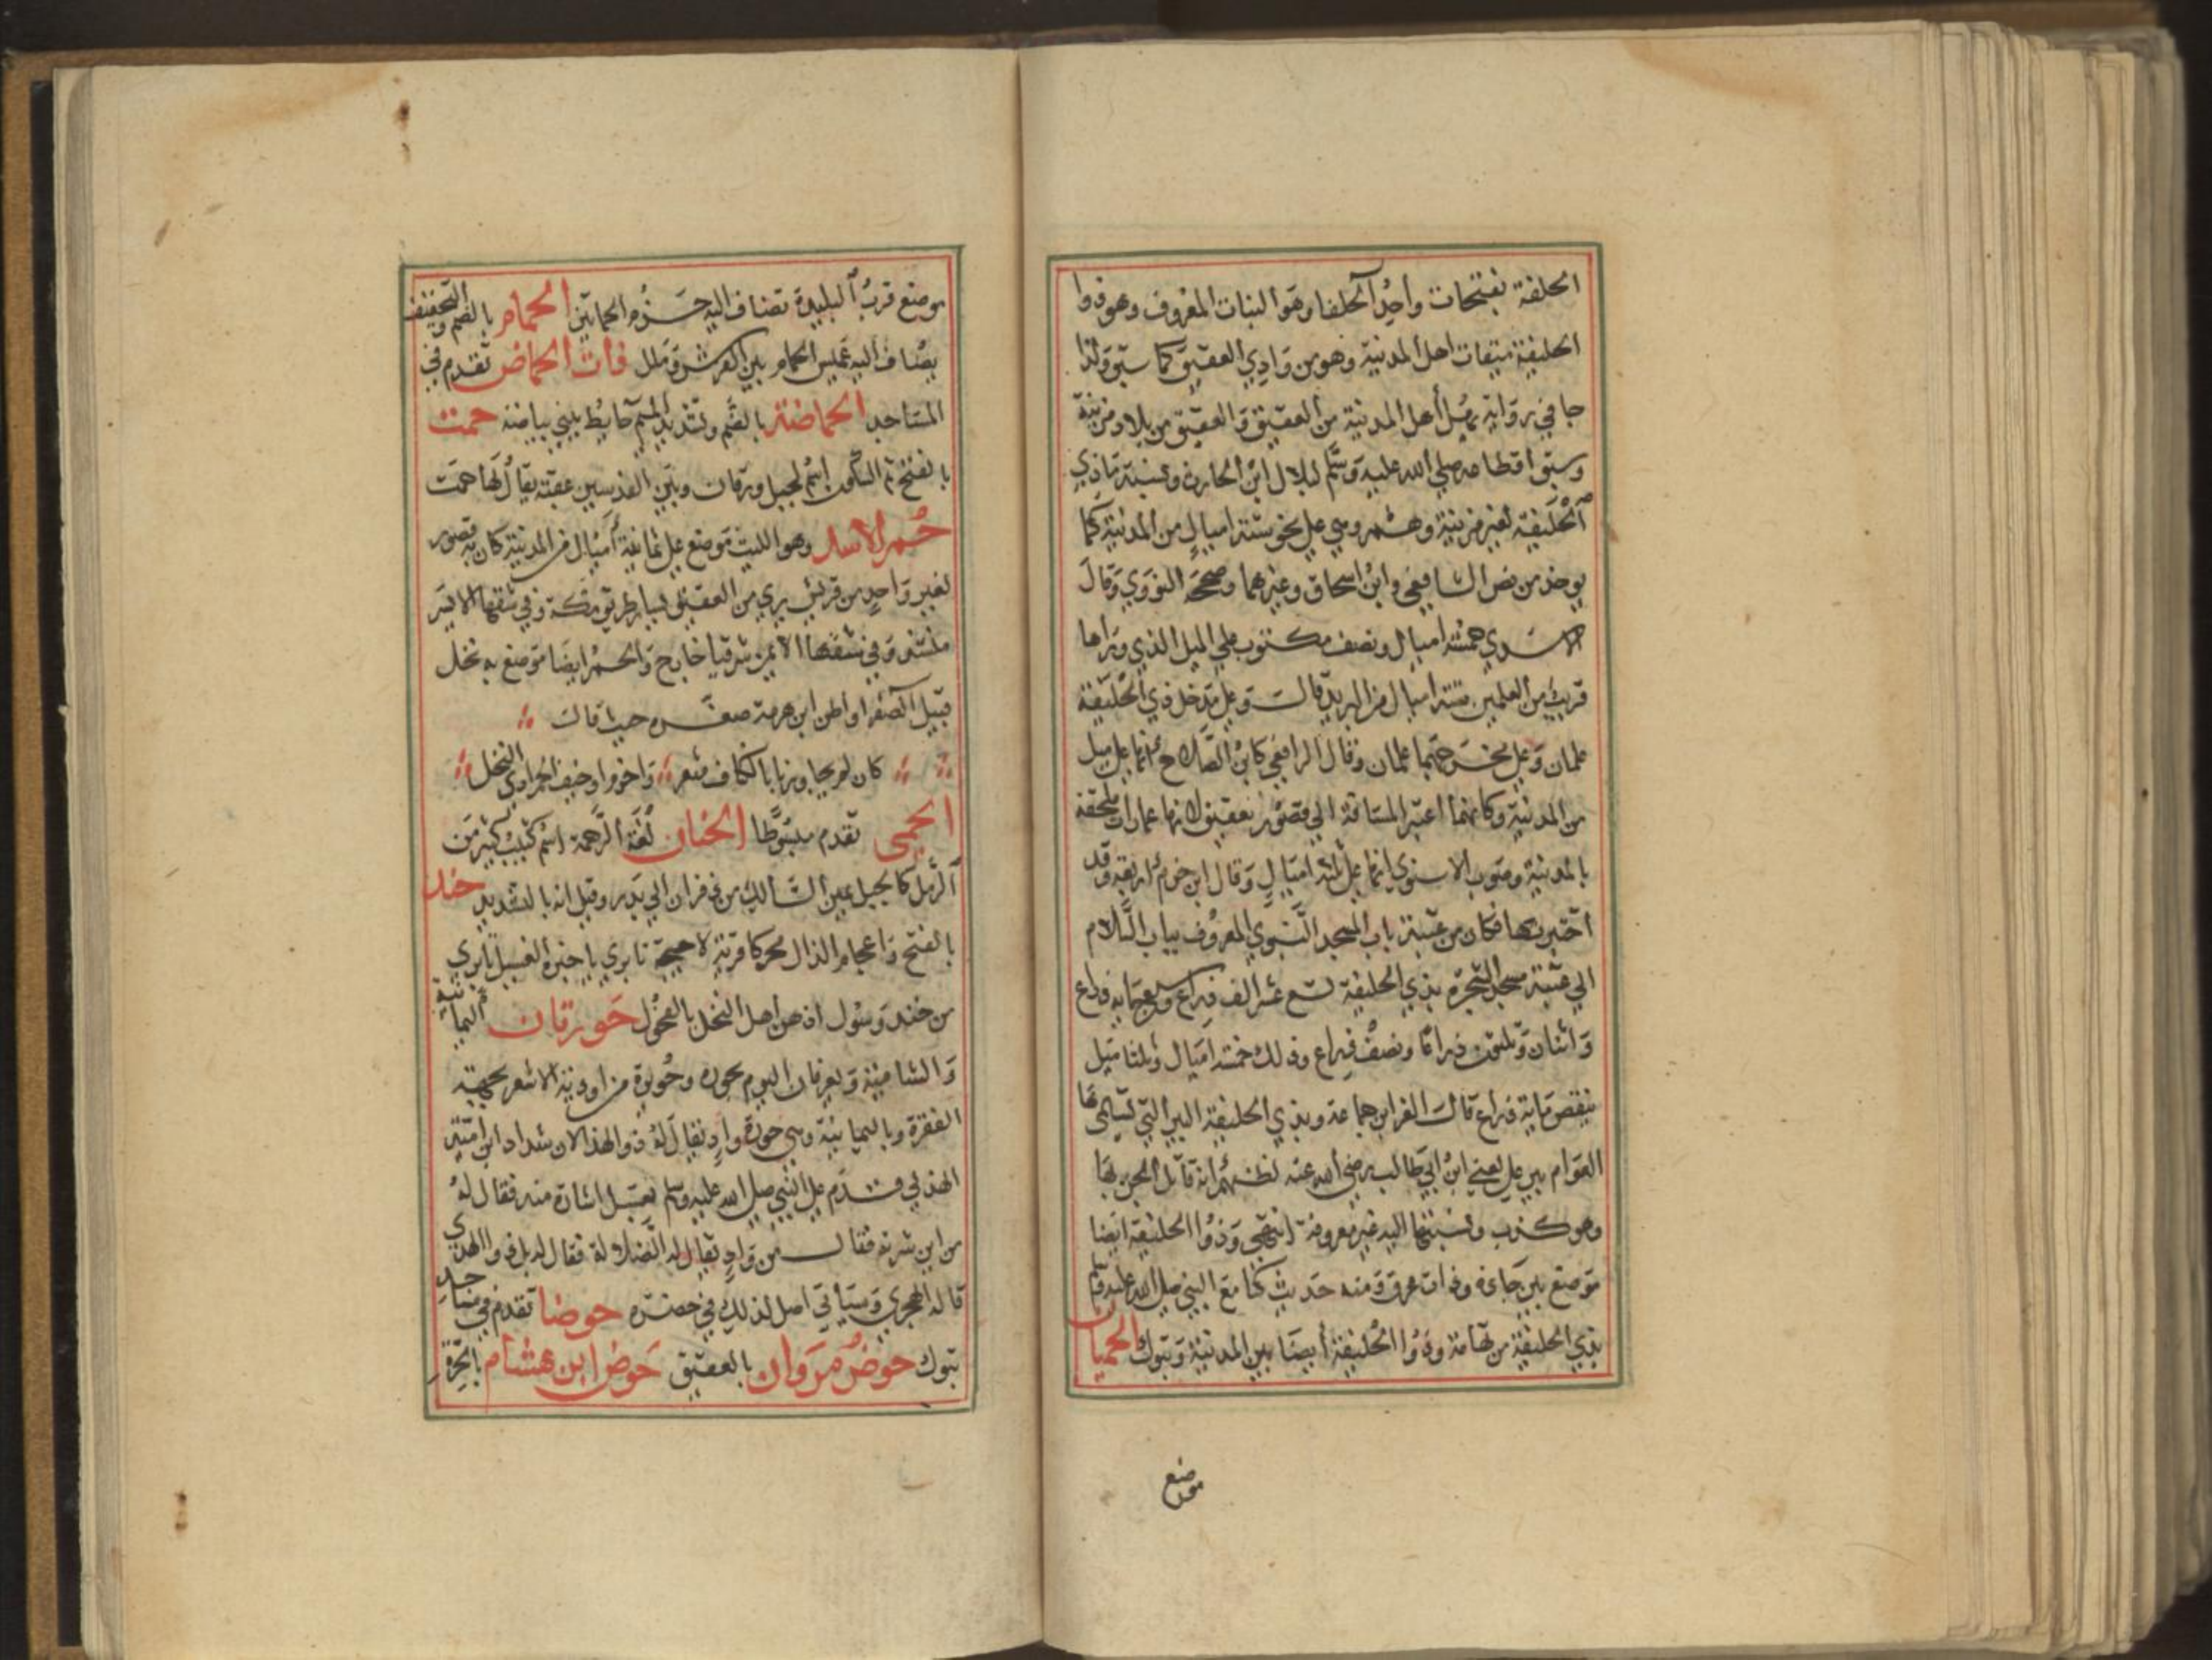 الحلفة بفتحات واحد الحلفا وهو النبات المعروف وهو ذوا
الحليفة ميقات اهل المدينة وهو من وادي العقيق كما سبق ولذا
جا في رواية يهل أهل المدينة من العقيق والعقيق من بلاد مزينة
وسبق اقطاعه صلي الله عليه وسلم لبلال ابن الحارث ونسبة ما ذي
الحليفة لغير مزينة وهشم وهي علي نحو ستة اميال من المدينة كما
يوخذ من نص الشافعي وابن اسحاق وغيرهما وصححه النووي وقال
الاسدي خمسة اميال ونصف مكتوب علي الميل الذي وراها
قريب من العلمين ستة اميال من البريد قالت وعلي مدخل ذي الحليفة
علمان وعلي مخرجها علمان وقال الرافعي كابن الصلاح انها علي ميل
من المدينة وكانهما اعتبر المسافة الي قصور بعقيق لانها عمارات ملحقة
بالمدينة وصوب الاسنوي انها علي ثلثة اميال وقال ابن حزم اربعة وقد
اختبرتها فكان من عتبة باب المسجد النبوي المعروف بباب السلام
الي عتبة مسجد الشجرة بذي الحليفة تسع عشر الف ذراع وسبعماية ذراع
واثنان وثلثون ذراعا ونصف ذراع وذلك خمسة اميال وثلثا ميل
ينقص ماية ذراع قال العز ابن جماعة وبذي الحليفة البير التي تسميها
العوام بير علي يعني ابن ابي طالب رضي الله عنه لظنهم انه قاتل الجن بها
وهو كذب ونسبتها اليه غير معروفة انتهي وذوا الحليفة ايضا
موضع بين جاذه وذات عرق ومنه حديث كنا مع النبي صلي الله عليه وسلم
بذي الحليفة من تهامة وذوا الحليفة أيضا بين المدينة وتبوك الحميان
موضع
موضع قرب البليدة تضاف اليه حزم الحماتين الحمام بالضم والتخفيف
يضاف اليه غميس الحمام بين الفرش وملل ذات الحماض تقدم في
المساجد الحماضة بالضم وتشديد الميم حايط لبني بياضة حمت
بالفتح ثم السكون اسم لجبل ورقان وبين القدسين عقبة يقال لها حمت
حمر الاسد وهو الليث موضع علي ثمانية أميال من المدينة كان به قصور
لغير واحد من قريش يري من العقيق ليسار طريق مكة وفي شقها الايسر
منشد وفي شقها الايمن شرقيا خابخ والحمر ايضا موضع به نخل
قبيل الصفرا واظن ابن هرمة صغره حيث قال
كان لم يجاورنا باكناف مثعر واخزم او خيف الحمر ادي النخل
الحمى تقدم مبسوطا الحنان لغة الرحمة اسم كثيب كبير من
الرمل كالجبل عين السالك من ذفران الي بدر وقيل انه بالتشديد حند
بالفتح واعجام الذال محركا قرية لاحيحة تابري يا خيرة الفسيل تابري
من حنذ وشول اذ ضن اهل النخل بالفحول حورتان اليمانية
والشامية ويعرفان اليوم بحورة وحويرة من اودية الاشعر بجهة
الفقرة وباليمانية وهي حورة واد يقال له ذو الهذالان شداد ابن امية
الهذلي قدم علي النبي صلي الله عليه وسلم بعسل اشارة منه فقال له
من اين شربه فقال من واد يقال له الضلالة فقال له بل ذوا الهدي
قاله الهجري وسياتي اصل لذلك في خضرة حوضا تقدم في مساجد
تبوك حوض مروان بالعقيق حوض ابن هشام بالحرة